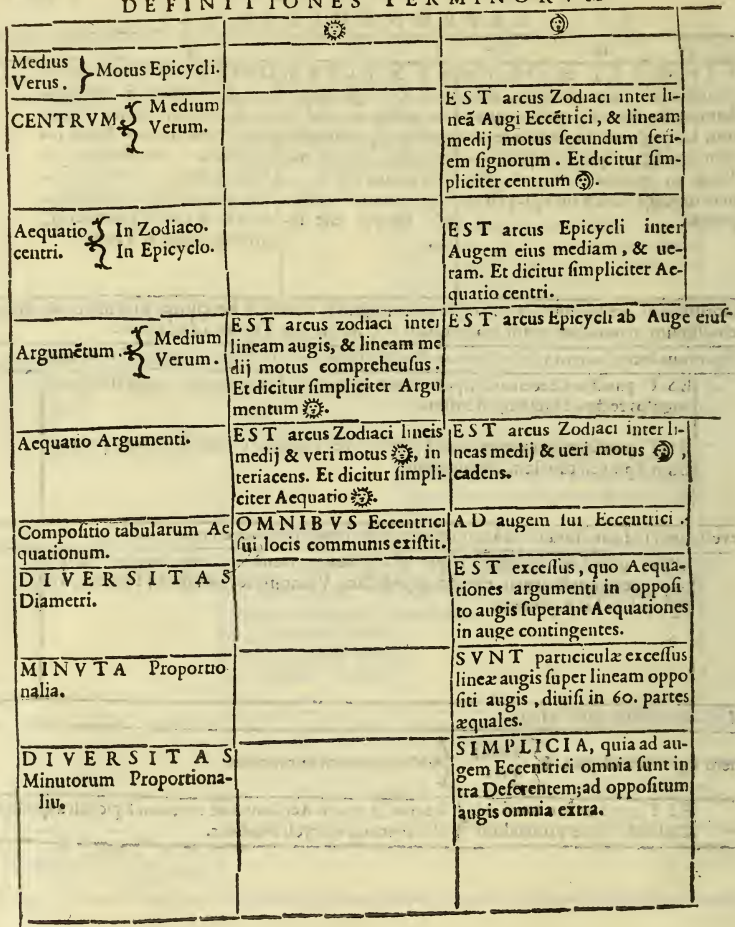 DEFINITIONES TERMINORVM
Medius
Verus. } Motus Epicycli.
CENTRVM { Medium
Verum.
EST arcus Zodiaci inter li-
neā Augi Eccētrici, & lineam
medij motus secundum seri-
em signorum. Et dicitur sim-
pliciter centrum ☽.
Aequatio { In Zodiaco.
centri. In Epicyclo.
EST arcus Epicycli inter
Augem eius mediam, & ue-
ram. Et dicitur simpliciter Ae-
quatio centri.
Argumētum. { Medium
Verum.
EST arcus zodiaci inter
lineam augis, & lineam me
dij motus compreheusus.
Et dicitur simpliciter Argu
mentum ☉.
EST arcus Epicycli ab Auge eius-
Aequatio Argumenti.
EST arcus Zodiaci lineis
medij & veri motus ☉, in
teriacens. Et dicitur simpli-
citer Aequatio ☉.
EST arcus Zodiaci inter li-
neas medij & ueri motus ☽,
cadens.
Compositio tabularum Ae
quationum.
OMNIBVS Eccentrici
sui locis communis existit.
AD augem sui Eccentrici.
DIVERSITAS
Diametri.
EST excessus, quo Aequa-
tiones argumenti in opposi
to augis superant Aequationes
in auge contingentes.
MINVTA Proportio
nalia.
SVNT particiculæ excessus
lineæ augis super lineam oppo
siti augis, diuisi in 60. partes
æquales.
DIVERSITAS
Minutorum Proportiona-
liu.
SIMPLICIA, quia ad au-
gem Eccentrici omnia sunt in
tra Deferentem; ad oppositum
augis omnia extra.